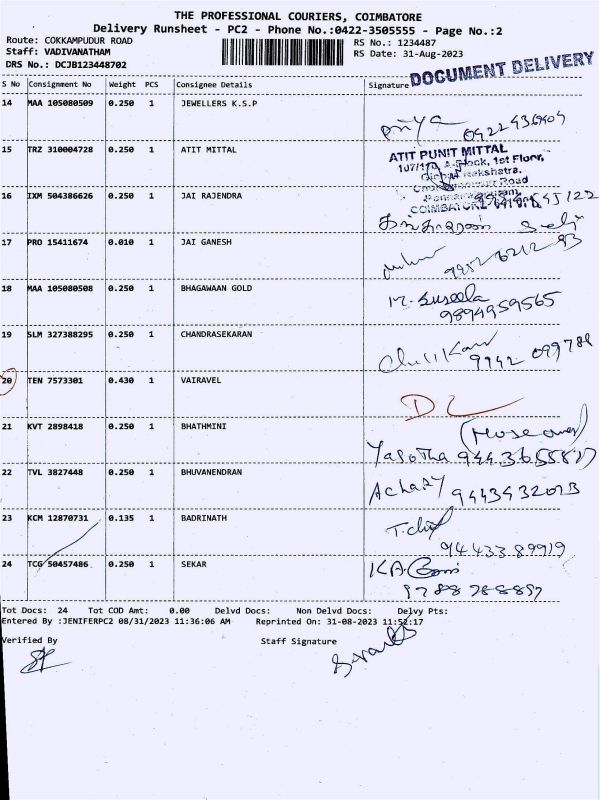 THE PROFESSIONAL COURIERS, COIMBATORE
Delivery Runsheet - PC2 - Phone No.:0422-3505555 - Page No.:2
Route: COKKAMPUDUR ROAD
RS No.: 1234487
Staff: VADIVANATHAM
RS Date: 31-Aug-2023
DRS No.: DCJB123448702
DOCUMENT DELIVERY
S No Consignment No Weight PCS Consignee Details Signature
14 MAA 105080509 0.250 1 JEWELLERS K.S.P
15 TRZ 310004728 0.250 1 ATIT MITTAL
ATIT PUNIT MITTAL
A-Block, 1st Floor,
Nakshatra.
Road
COIMBATORE
16 IXM 504386626 0.250 1 JAI RAJENDRA
17 PRO 15411674 0.010 1 JAI GANESH
18 MAA 105080508 0.250 1 BHAGAWAAN GOLD
M. Suseela
9894959565
19 SLM 327388295 0.250 1 CHANDRASEKARAN
9942 099788
20 TEN 7573301 0.430 1 VAIRAVEL
DL
21 KVT 2898418 0.250 1 BHATHMINI
(House owner)
Yasotha 9443655817
22 TVL 3827448 0.250 1 BHUVANENDRAN
Achary 9443432023
23 KCM 12870731 0.135 1 BADRINATH
9443389919
24 TCG 50457486 0.250 1 SEKAR
9788788897
Tot Docs: 24 Tot COD Amt: 0.00 Delvd Docs: Non Delvd Docs: Delvy Pts:
Entered By :JENIFERPC2 08/31/2023 11:36:06 AM Reprinted On: 31-08-2023 11:52:17
Verified By Staff Signature